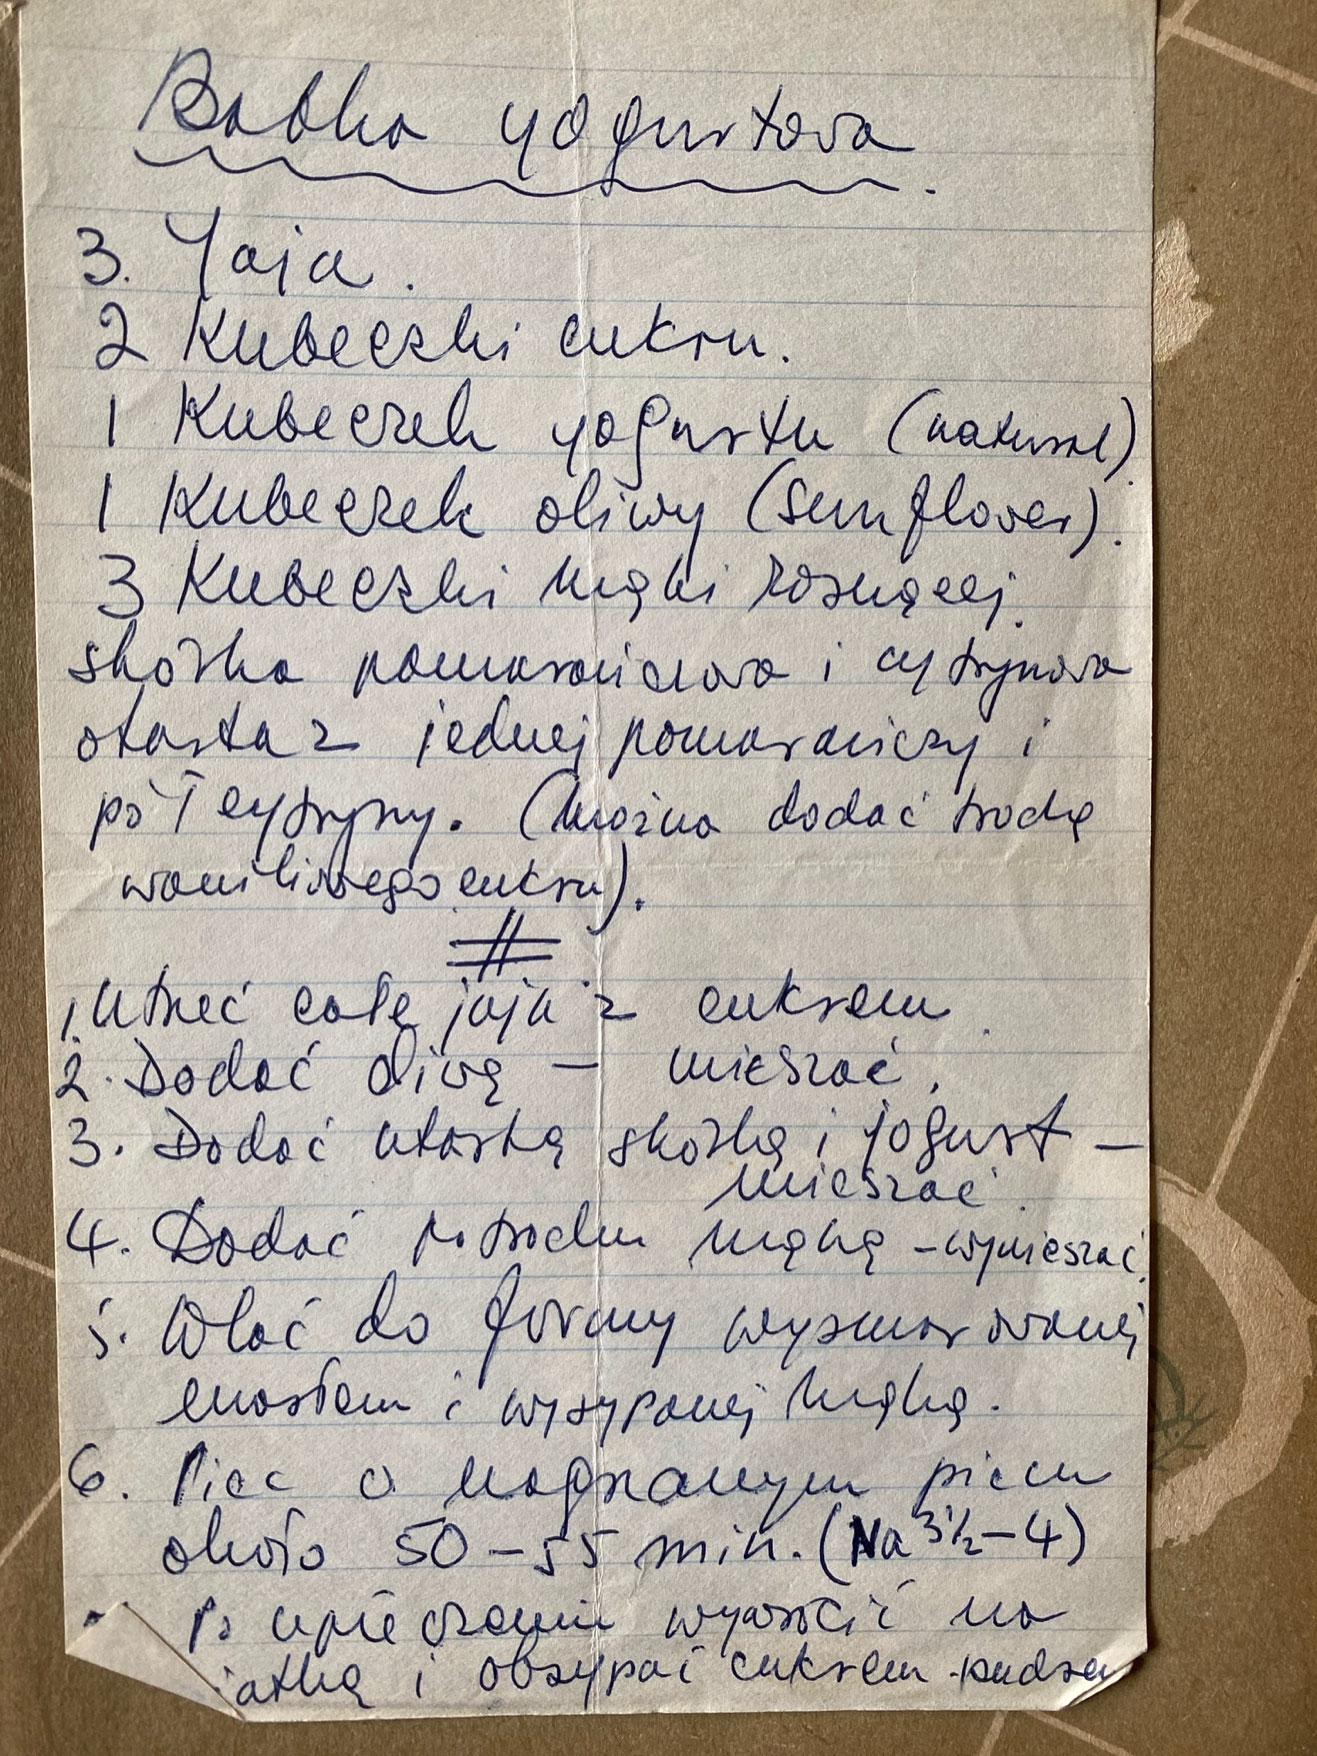 Babka yogurtowa.
3. Yaja.
2 Kubeczki cukru.
1 Kubeczek yogurtu (natural).
1 Kubeczek oliwy (Sunflower).
3 Kubeczki mąki rosnącej.
skórka pomarańczowa i cytrynowa
otarta z jednej pomarańczy i
pół cytryny. (Można dodać trochę
waniliowego cukru).
1. Utrzeć całe jaja z cukrem.
2. Dodać oliwę – mieszać.
3. Dodać utartą skórkę i jogurt –
mieszać.
4. Dodać po trochu mąkę – wymieszać.
5. Wlać do formy wysmarowanej
masłem i wysypanej mąką.
6. Piec w nagrzanym piecu
około 50–55 min. (Na 3½–4)
Po upieczeniu wyrzucić na
siatkę i obsypać cukrem-pudrem